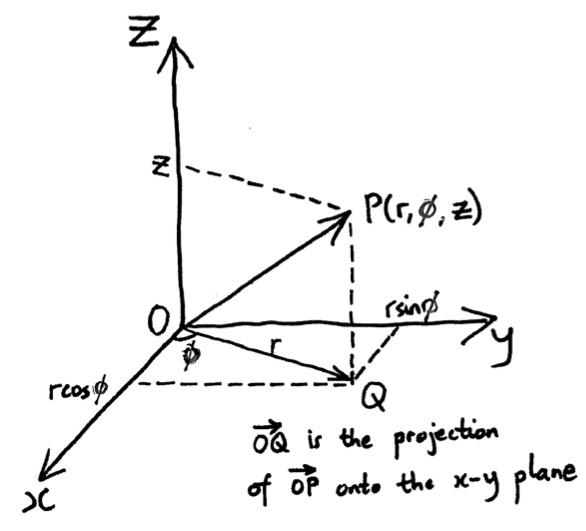 Z
z
P(r, φ, z)
O
rsinφ
y
φ
r
rcosφ
Q
x
OQ is the projection
of OP onto the x-y plane